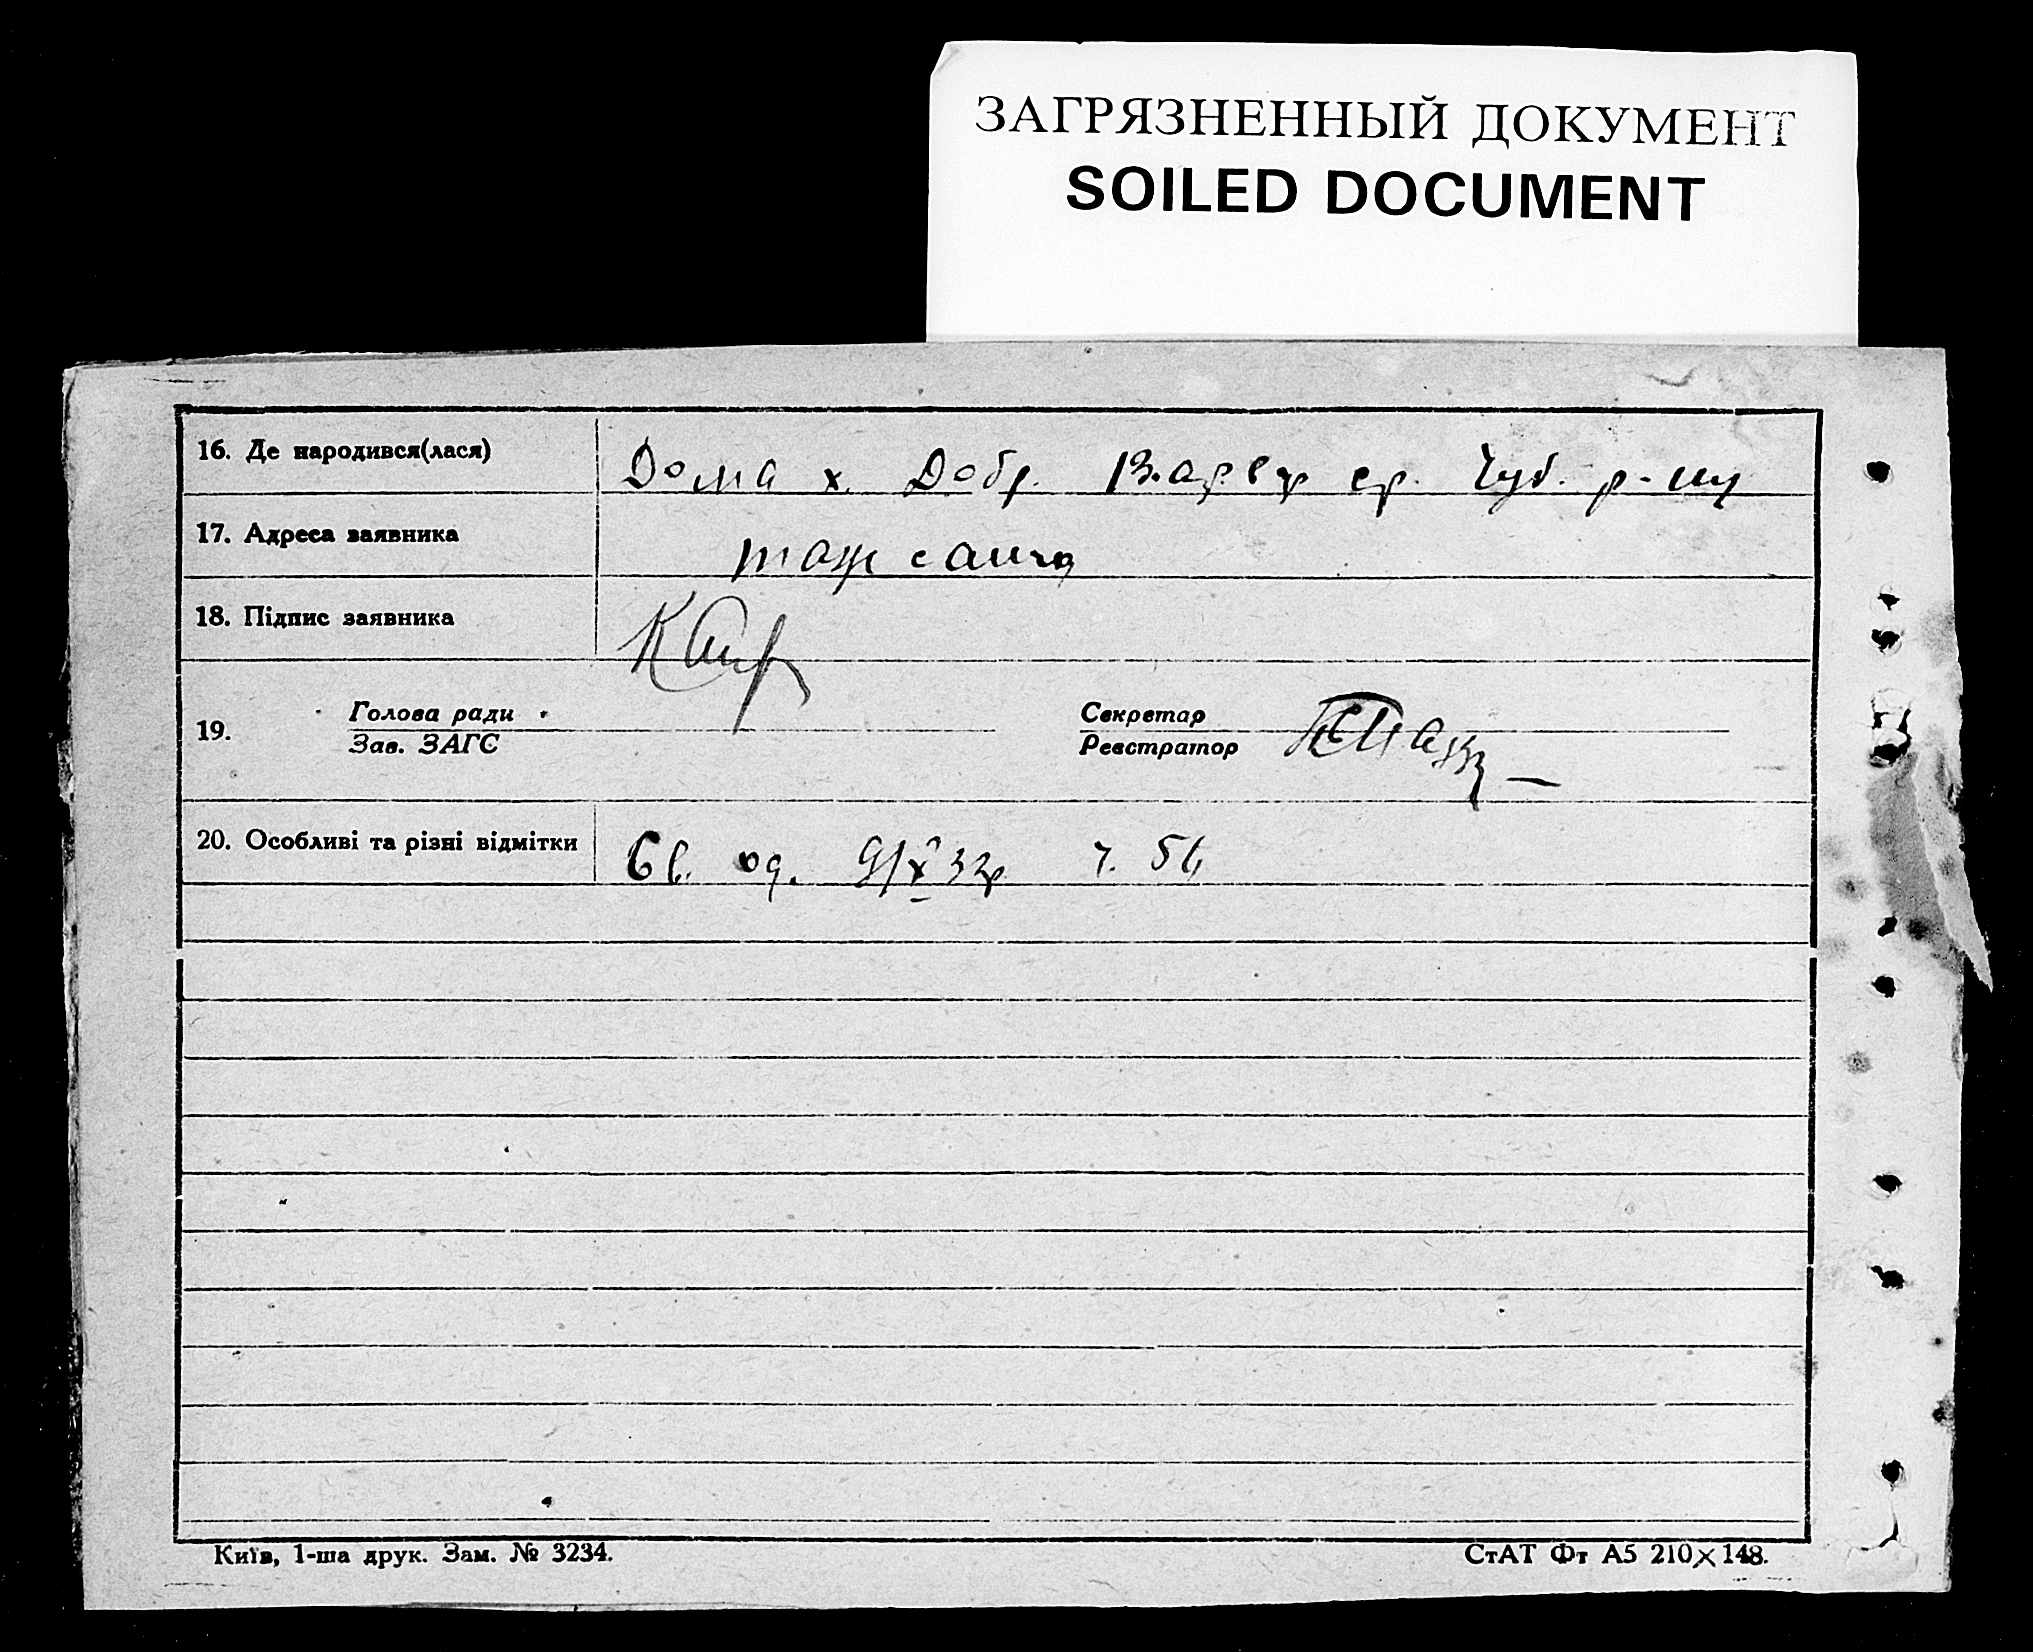 ЗАГРЯЗНЕННЫЙ ДОКУМЕНТ
SOILED DOCUMENT
16. Де народився(лася) Дома х. Добр. ср. Чуб. р-ну
17. Адреса заявника
18. Підпис заявника
19. Голова ради Секретар
Зав. ЗАГС Реєстратор
20. Особливі та різні відмітки Св. од. 9/X 32р ч. 56
Київ, 1-ша друк. Зам. № 3234. СтАТ Фт А5 210×148.